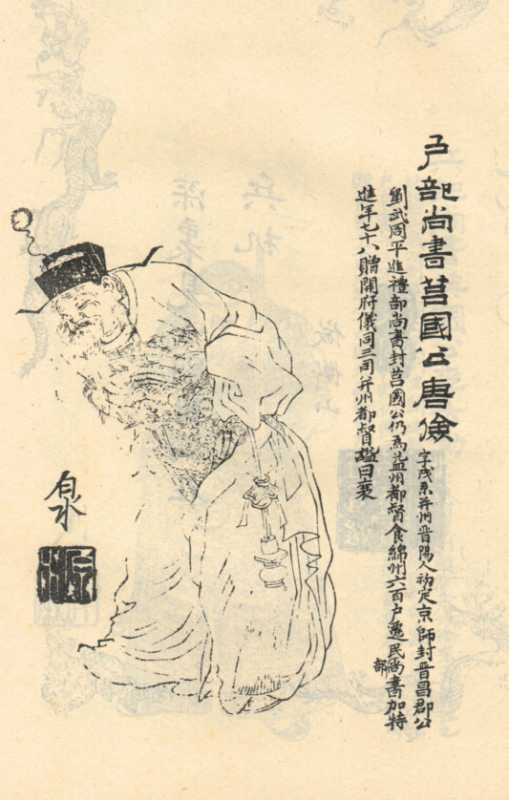 戶部尚書莒國公唐儉 字茂系并州晉陽人初定京師封晉昌郡公
劉武周平進禮部尚書封莒國公仍為遂州都督食綿州六百戶遷民部尚書加特
進年七十八贈開府儀同三司并州都督謚曰襄
泉